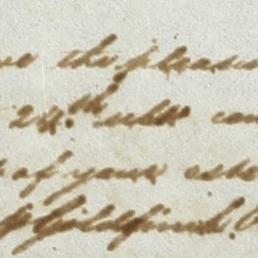 the pleasu
24th ulto
of your este
Goldfinch.